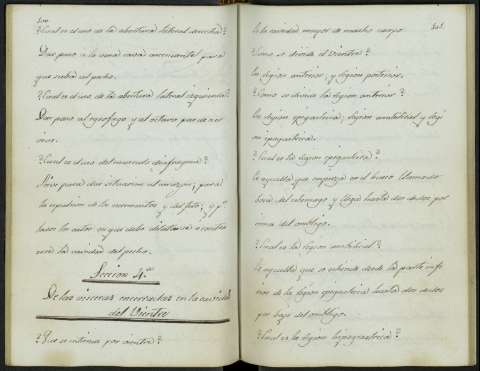 ¿Cual es el uso de la abertura lateral derecha?
Dar paso a la vena cava ascendente para
que suba al pecho.
¿Cual es el uso de la abertura lateral izquierda?
Dar paso al esofago y al octavo par de ner
vios.
¿Cual es el uso del musculo diafragma?
Sirve para dar situacion al corazon; para
la expulsion de los excrementos, y del feto; y p.ª
hacer los actos en que debe dilatarse o contra
erse la cavidad del pecho.
Seccion 4.ª
De las visceras encerradas en la cavidad
del Vientre
¿Que se entiende por vientre?
201.
la cavidad mayor de nuestro cuerpo
¿Como se divide el vientre?
En region anterior, y region posterior.
¿Como se divide la region anterior?
En region epigastrica, region umbilical y regi
on ipogastrica.
¿Cual es la region epigastrica?
Es aquella que empieza en el hueco llamado
boca del estomago y llega hasta dos dedos por
encima del ombligo.
¿Cual es la region umbilical?
Es aquella que se estiende desde la parte infe
rior de la region epigastrica hasta dos dedos
por bajo del ombligo.
¿Cual es la region hipogastrica?